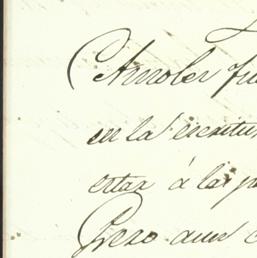 Arnoler fu
en la escritu
estar á las p
Pero aun c